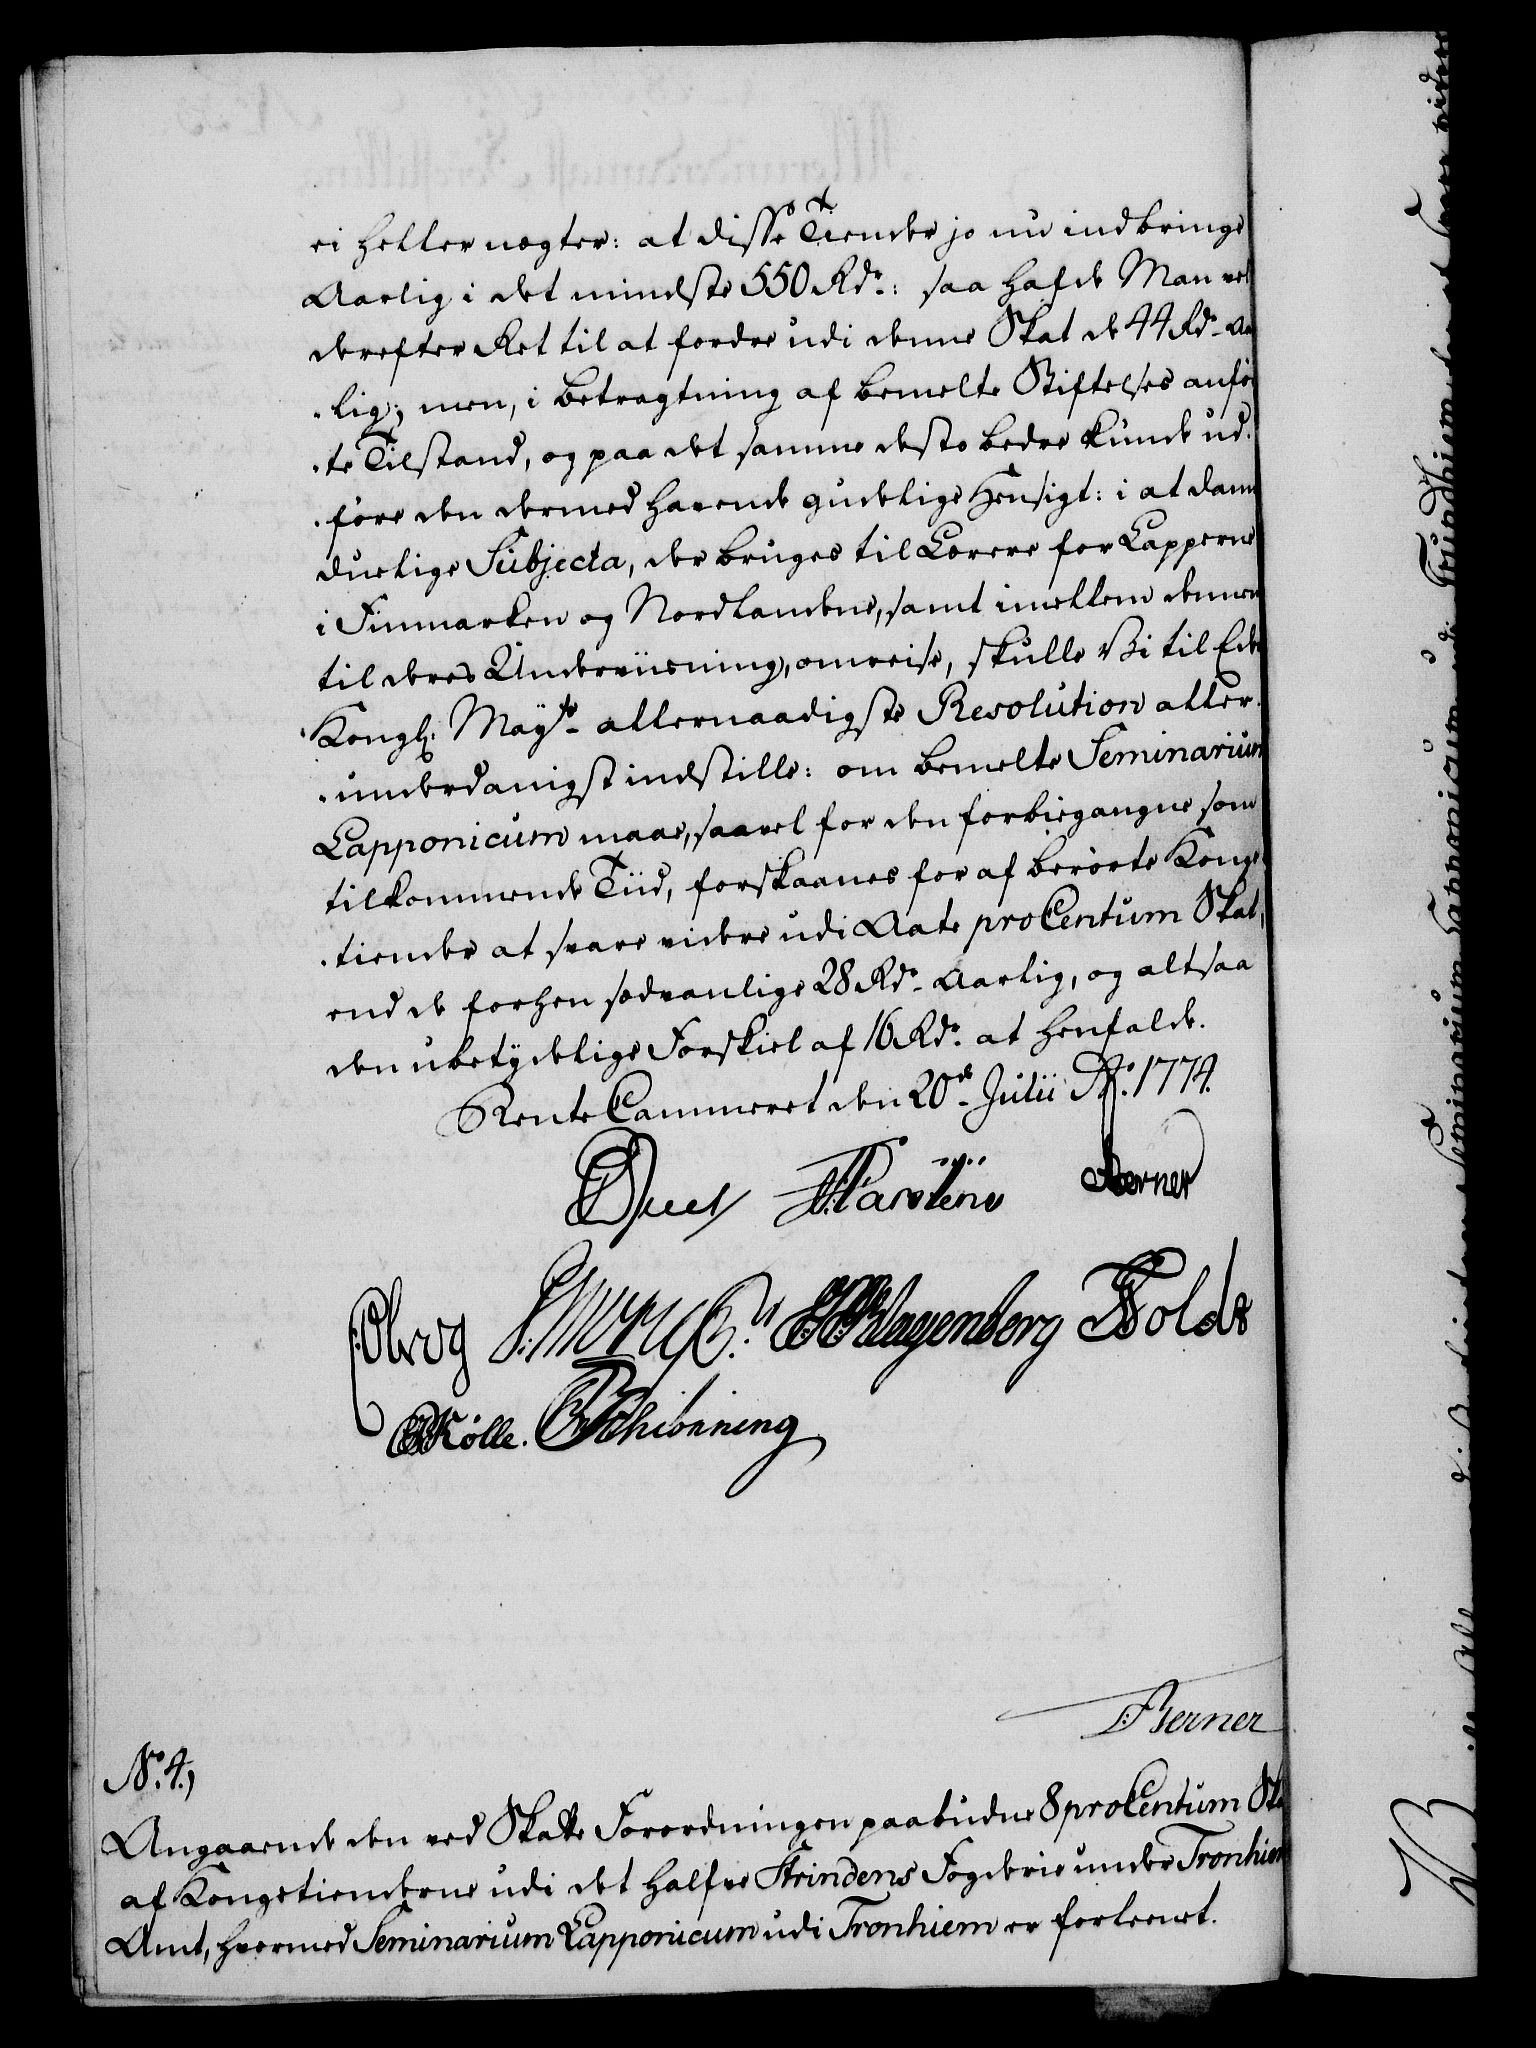 ei heller nægter: at disse Tiender jo nu indbringe
Aarlig i det mindste 550 Rdr.: saa hafde Man vel
derefter Ret til at fordre udi denne Skat de 44 Rdr. Aar
lig; men, i Betragtning af bemelte Stiftelses anfør
te Tilstand, og paa det samme desto bedre kunde ud
føre den dermed havende gudelige Hensigt: i at danne
duelige Subjecta, der bruges til Lærere for Lapperne
i Finmarken og Nordlandene, samt imellem dennem
til deres Underviisning, omreise, skulle Vi til Eders
Kongl: Mayts. allernaadigste Resolution aller-
underdanigst indstille: om bemelte Seminarium
Lapponicum maae, saavel for den forbigangne som
tilkommende Tiid, forskaanes for af berørte Konge
tiender at svare videre udi Aate pro Centum Skat,
end de forhen sædvanlige 28 Rdr. Aarlig, og altsaa
den ubetydelige Forskiel af 16 Rdr. at henfalde.
Rente Cammeret den 20de Julii Ao. 1774.
Berner
Klagenberg
Kølle. Schiønning
Berner
No. 4,
Angaaende den ved Skatte Forordningen paabudne 8 pro Centum Skat
af Kongetienderne udi det halfve Strindens Fogderie under Tronhiems
Amt, hvormed Seminarium Lapponicum udi Tronhiem er forleenet.